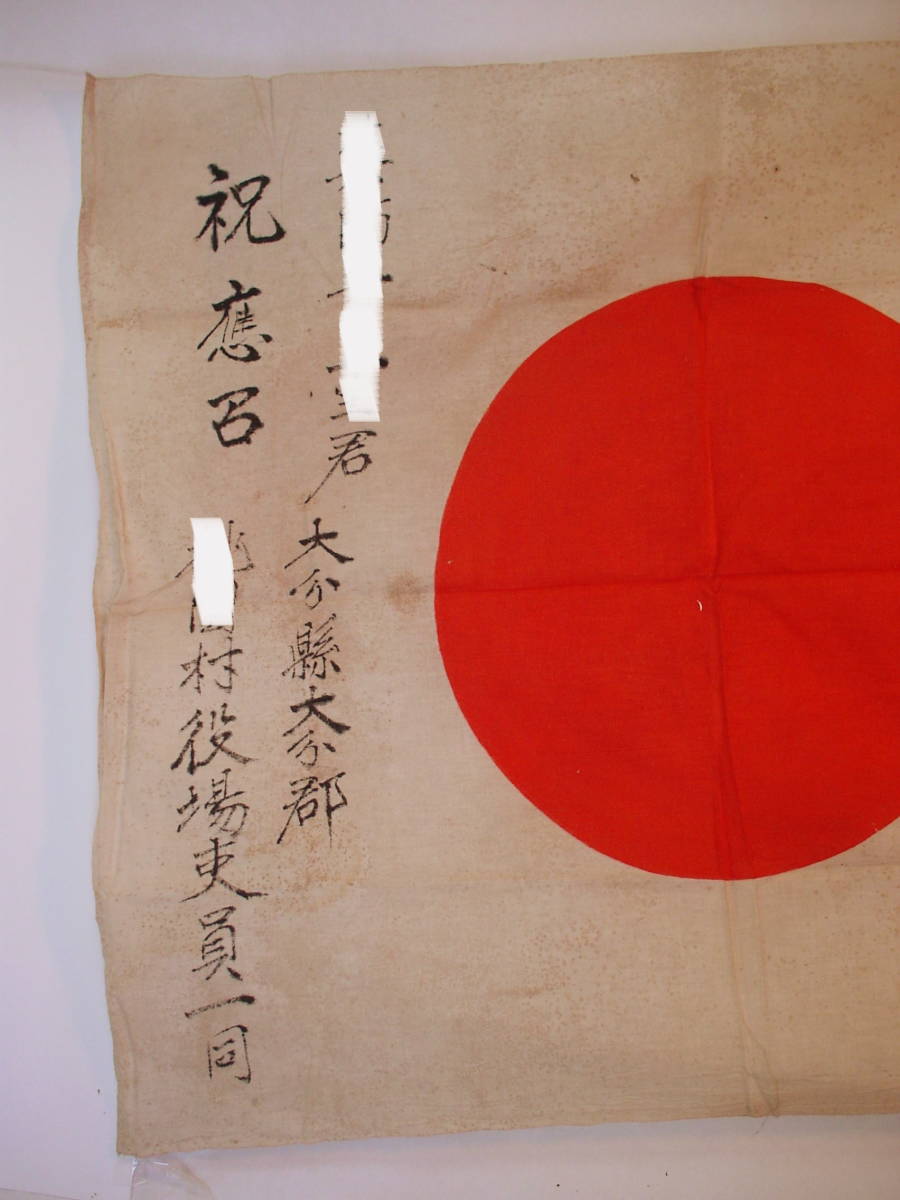 君
大分縣大分郡
祝應召
村役場吏員一同